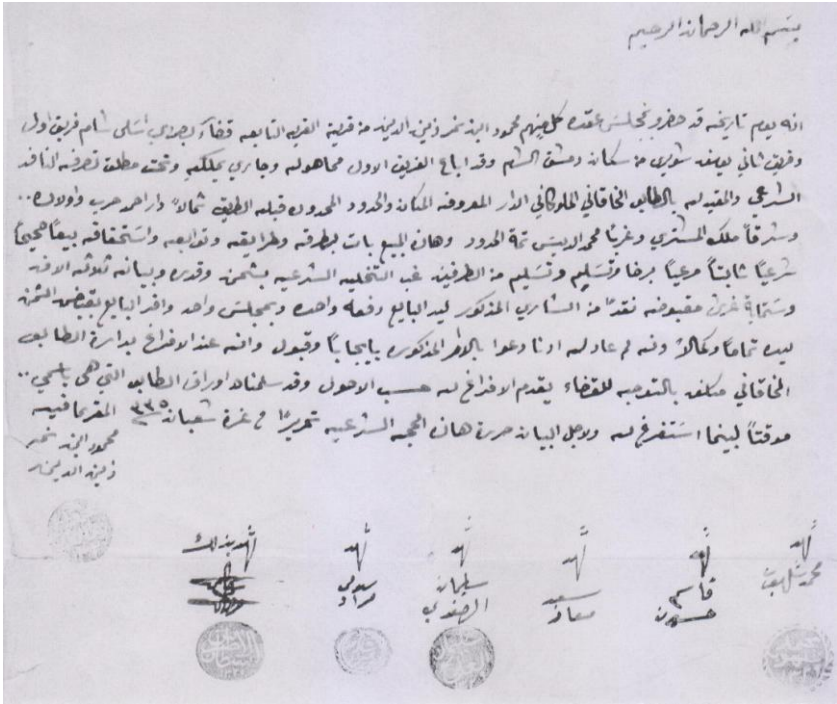 بسم الله الرحمان الرحيم
انه يوم تاريخه قد حضر بمجلس عقده كل منهم محمود ابن نمر زين الدين من قرية القريه التابعه قضاء بصرى اسكي شام فريق اول
وفريق ثاني يوسف شويري من سكان دمشق الشام وقد اباع الفريق الاول مما هو له وجاري بملكه وتحت مطلق تصرفه النافذ
الشرعي والمقيد له بالطابو الخاقاني الدار المعروفة المكان والحدود المحدوده قبلة الطريق شمالاً دار احمد حرب واولاده..
وشرقاً ملك المشتري وغرباً محمد الدبيس تمة الحدود وهذا المبيع بات بطرقه وطرايقه وتوابعه واستحقاقه بيعاً صحيحاً
شرعياً ثابتاً مرعياً برضا وتسليم وتسليم من الطرفين غب التخليه الشرعيه بثمن وقدره وبيانه ثلاثة الاف
وستماية غرش مقبوضه نقداً من الشاري المذكور ليد البايع دفعه واحده وبمجلس واحد واقر البايع بقبض الثمن
ليده تماماً وكمالاً وانه لم عاد له ادنا دعوا بالدار المذكوره بايجاباً وقبول وانه عند الافراغ بدايرة الطابو
الخاقاني مكلف بالتوجه للقضاء يقدم الافراغ له حسب الاصول وقد سلمناه اوراق الطابو التي هي باسمي..
موقتاً لبينما استفرغ له ولاجل البيان حررة هذا الحجه الشرعيه تحريراً في غرة شعبان ٣٣٥ المقر بما فيه
محمود ابن نمر
زين الدين
شهد
محمد شلهوب
شهد
قاسم
حسون
شهد
سعيد
معاز
شهد
سليمان
الهنيدي
شهد
مراد
شهد بذلك